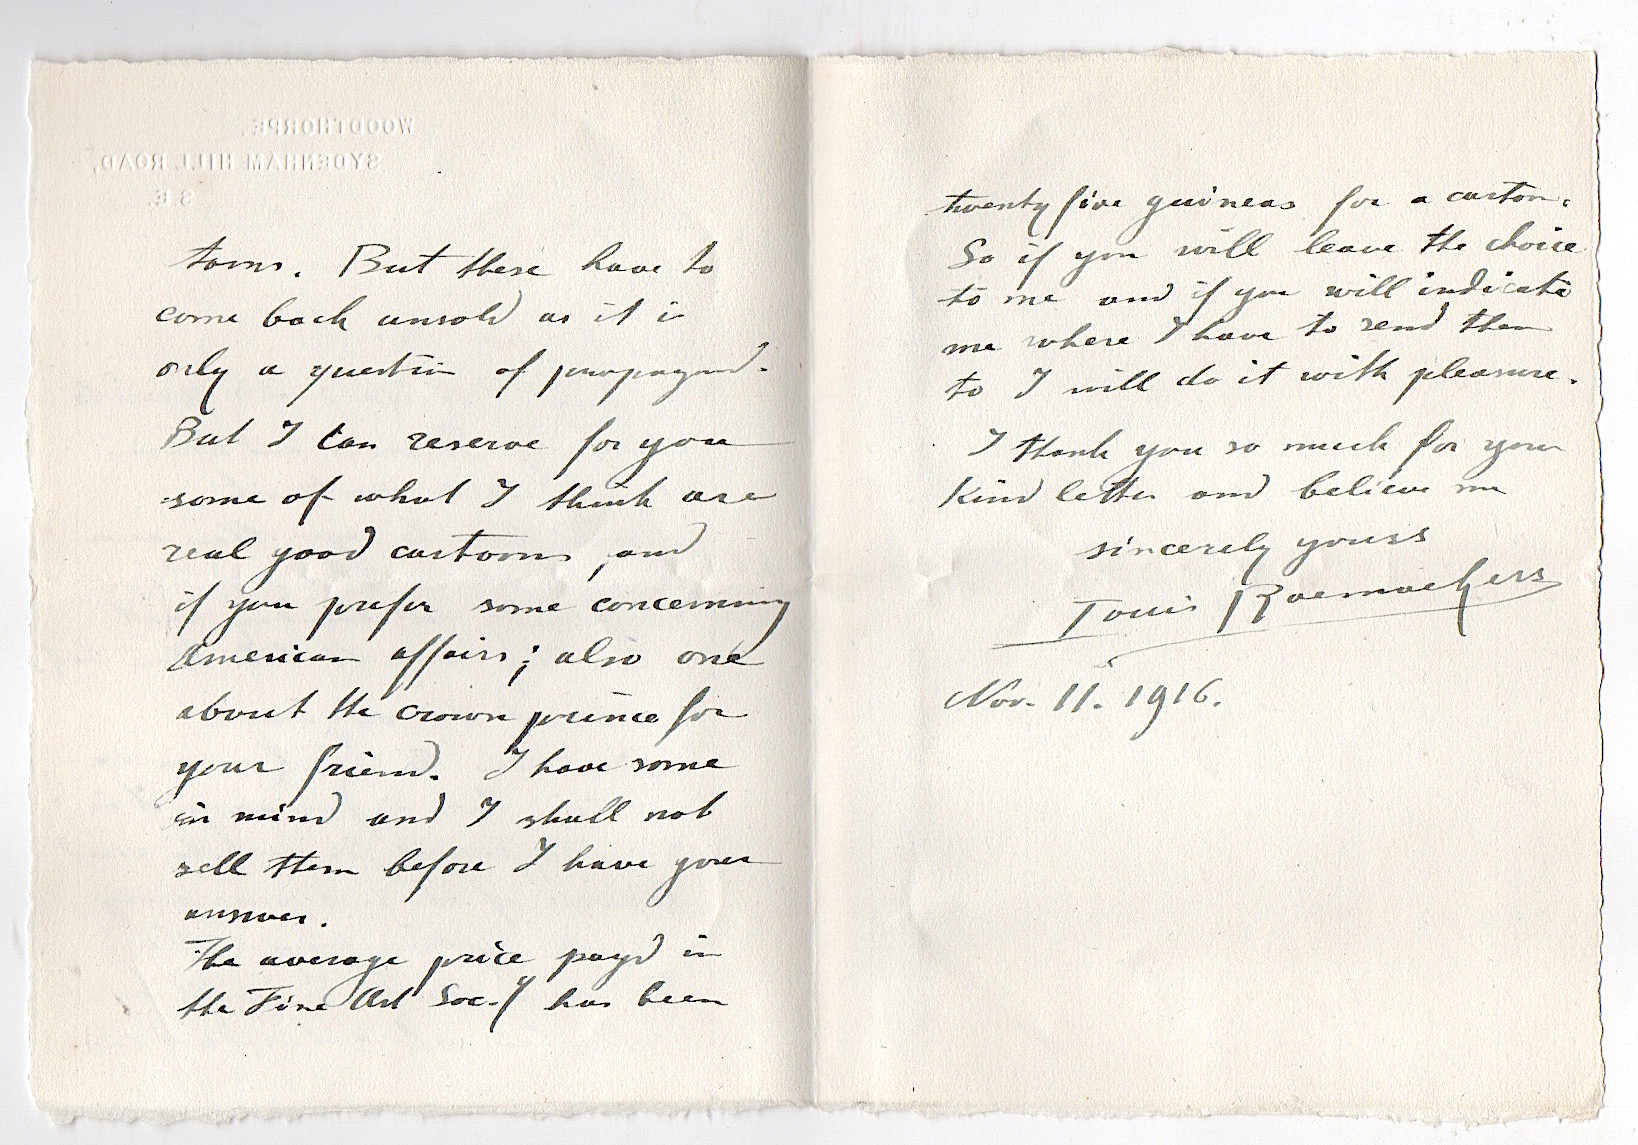 WOODTHORPE,
SYDENHAM HILL ROAD,
S.E.
toons. But these have to
come back unsold as it is
only a question of propagand.
But I can reserve for you
some of what I think are
real good cartoons, and
if you prefer some concerning
American affairs; also one
about the crown prince for
your friend. I have some
in mind and I shall not
sell them before I have your
answer.
The average price payd in
the Fine Art Soc.y has been
twenty five guineas for a cartoon.
So if you will leave the choice
to me and if you will indicate
me where I have to send them
to I will do it with pleasure.
I thank you so much for your
kind letter and believe me
sincerely yours
Louis Raemaekers
Nov. 11. 1916.